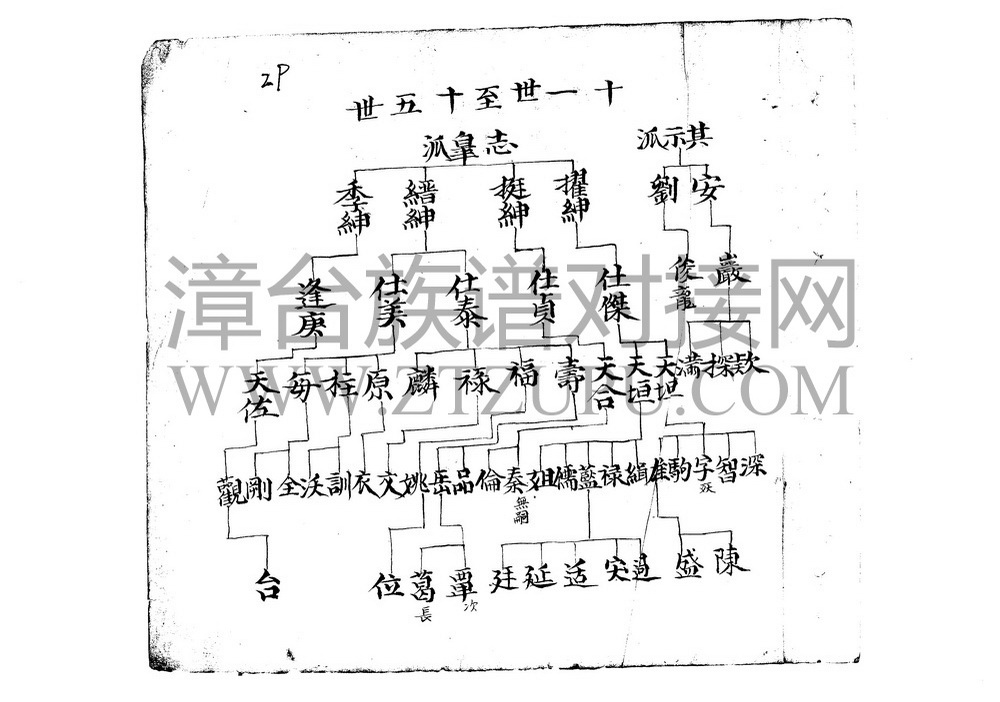 2P
十一世至十五世
其示派 志皐派
安 劉 擢紳 挺紳 縉紳 季紳
巖 俊龍 仕傑 仕貞 仕泰 仕美 逢庚
欵 探 满 天坦 天垣 天合 壽 福 禄 麟 原 柱 每 天佐
深 智 字 駒 雄 緝 禄 藍 儒 姐 秦 倫 品 岳 姚 文 衣 訓 沃 全 剛 觀
無嗣
陳 盛 适 延 廷 覃 葛 位 台
次 長
漳台族谱对接网
WWW.ZTZUPU.COM